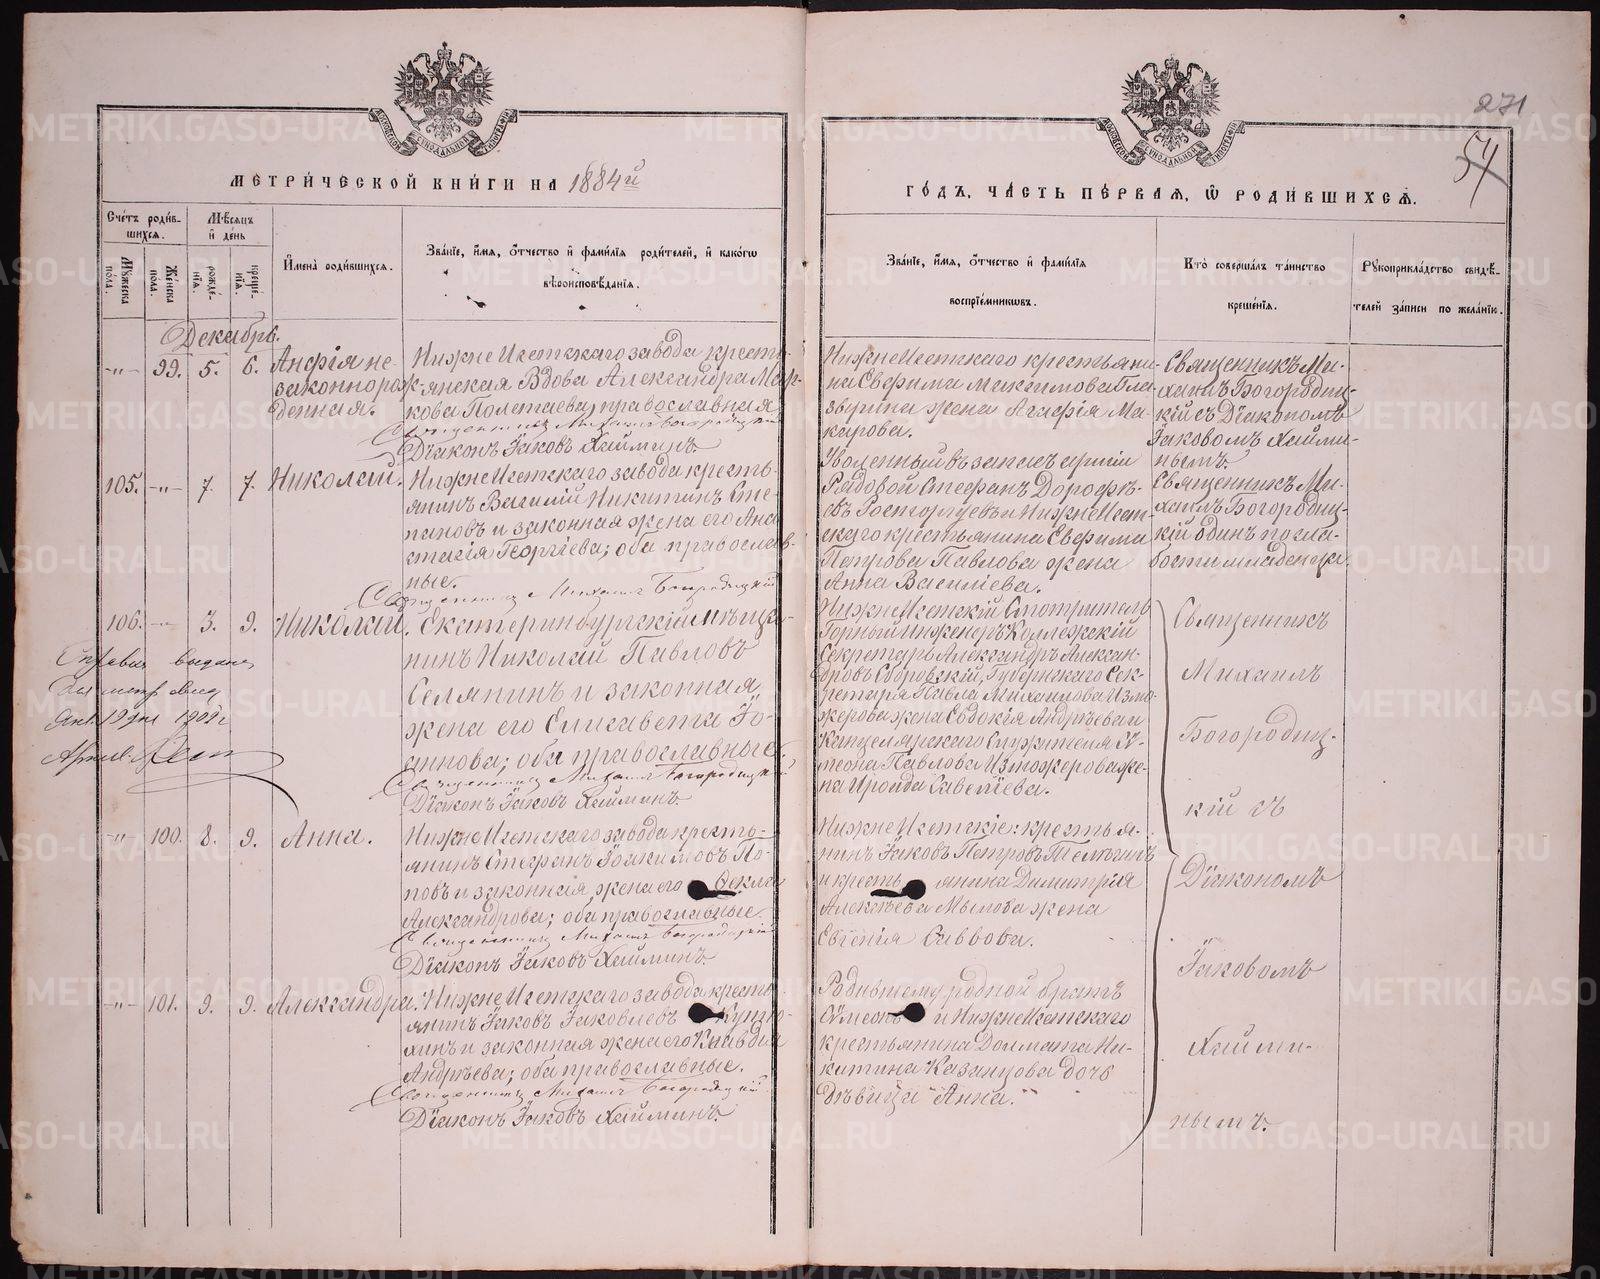 271
54
МЕТРИ́ЧЕСКОЙ КНИ́ГИ НА 1884й
ГО́ДЪ, ЧА́СТЬ ПЕ́РВАѦ, Ѿ РОДИ́ВШИХСѦ.
Сче́тъ роди́в-
шихсѧ.
Мѣ́сѧцъ
и́ де́нь
Мꙋ́жеска
по́ла.
Же́нска
по́ла.
рожде́-
нїѧ.
креще́-
нїѧ.
И҆мена̀ роди́вшихсѧ.
Зва́нїе, и҆́мѧ, ѻ҆́тчество и҆ фами́лїѧ роди́телей, и҆ како́гѡ
вѣроисповѣ́данїѧ.
Зва́нїе, и҆́мѧ, ѻ҆́тчество и҆ фами́лїѧ
воспрїе́мникѡвъ.
Кто̀ соверша́лъ та́инство
креще́нїѧ.
Рꙋкоприкла́дство свидѣ́-
телей за́писи по жела́нїю.
Декабрь.
-"- 99. 5. 6. Анфія не-
законнорож-
денная.
НижнеИсетскаго завода кресть-
янская Вдова Александра Мар-
кова Полетаева, православная
Священникъ Михаилъ Богородицкій
Діаконъ Іаковъ Хайминъ.
НижнеИсетскаго крестьяни-
на Ефима Максимова Гла-
зырина жена Агафія Ма-
карова.
Священникъ Ми-
хаилъ Богородиц-
кій съ Діакономъ
Іаковомъ Хайми-
нымъ.
105. -"- 7. 7. Николай.
НижнеИсетскаго завода кресть-
янинъ Василій Никитинъ Сте-
пановъ и законная жена его Ана-
стасія Георгіева; оба православ-
ные.
Священникъ Михаилъ Богородицкій
Уволенный въ запасъ арміи
Рядовой Стефанъ Дорофѣ-
евъ Расторгуевъ и НижнеИсет-
скаго крестьянина Ефима
Петрова Павлова жена
Анна Василіева.
Священникъ Ми-
хаилъ Богородиц-
кій одинъ по сла-
бости младенца.
106. -"- 3. 9. Николай.
Екатеринбургскій мѣща-
нинъ Николай Павловъ
Селянинъ и законная
жена его Елисавета Іо-
аннова; оба православные.
Священникъ Михаилъ Богородицкій
Діаконъ Іаковъ Хайминъ.
Справка выдана
1909 г
НижнеИсетскій Смотритель
Горный Инженеръ Коллежскій
Секретарь Александръ Алексан-
дровъ Губернскаго Сек-
ретаря Павла Михаилова Измо-
жерова жена Евдокія Андрѣева и
Канцелярскаго Служителя Сѵ-
меона Павлова Изможерова же-
на Ираида Савеліева.
Священникъ
Михаилъ
Богородиц-
кій съ
Діакономъ
Іаковомъ
Хайми-
нымъ.
-"- 100. 8. 9. Анна.
НижнеИсетскаго завода кресть-
янинъ Стефанъ Іоакимовъ По-
повъ и законная жена его Ѳекла
Александрова; оба православные.
Священникъ Михаилъ Богородицкій
Діаконъ Іаковъ Хайминъ.
НижнеИсетскіе: крестья-
нинъ Іаковъ Петровъ Телѣгинъ
и крестьянина Димитрія
Алексѣева Мылова жена
Евгенія Саввова.
-"- 101. 9. 9. Александра.
НижнеИсетскаго завода кресть-
янинъ Іаковъ Іаковлевъ
и законная жена его Клавдія
Андрѣева; оба православные.
Священникъ Михаилъ Богородицкій
Діаконъ Іаковъ Хайминъ.
Родившему родной братъ
Сѵмеонъ и НижнеИсетскаго
крестьянина Долмата Ни-
китина Казанцова дочь
дѣвица Анна.
METRIKI.GASO-URAL.RU